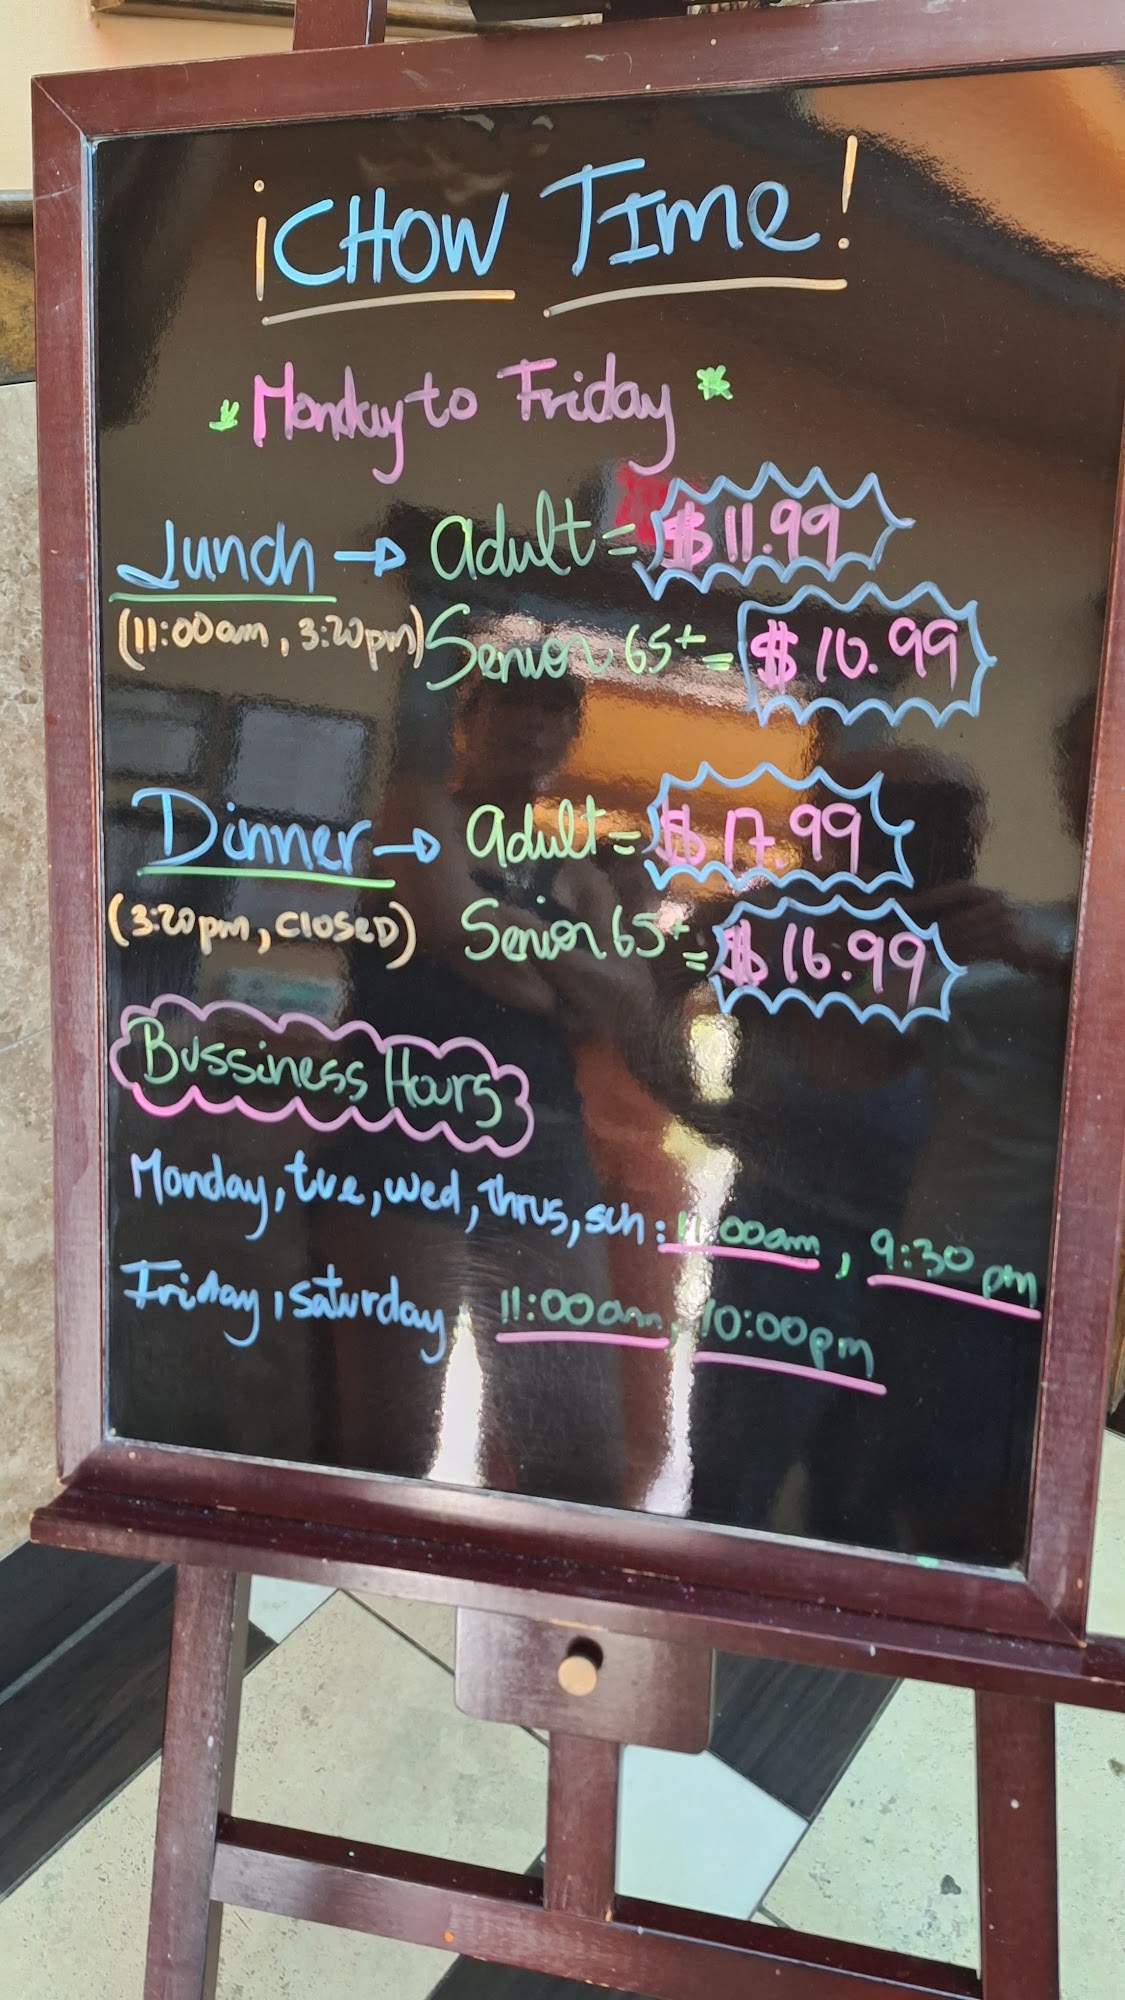 ¡CHOW TIME!
Monday to Friday
Lunch → Adult = $11.99
(11:00am, 3:20pm) Senior 65+ = $10.99
Dinner → Adult = $17.99
(3:20pm, CLOSED) Senior 65+ = $16.99
Bussiness Hours
Monday, tue, wed, thrus, sun: 11:00am, 9:30pm
Friday, saturday 11:00am, 10:00pm